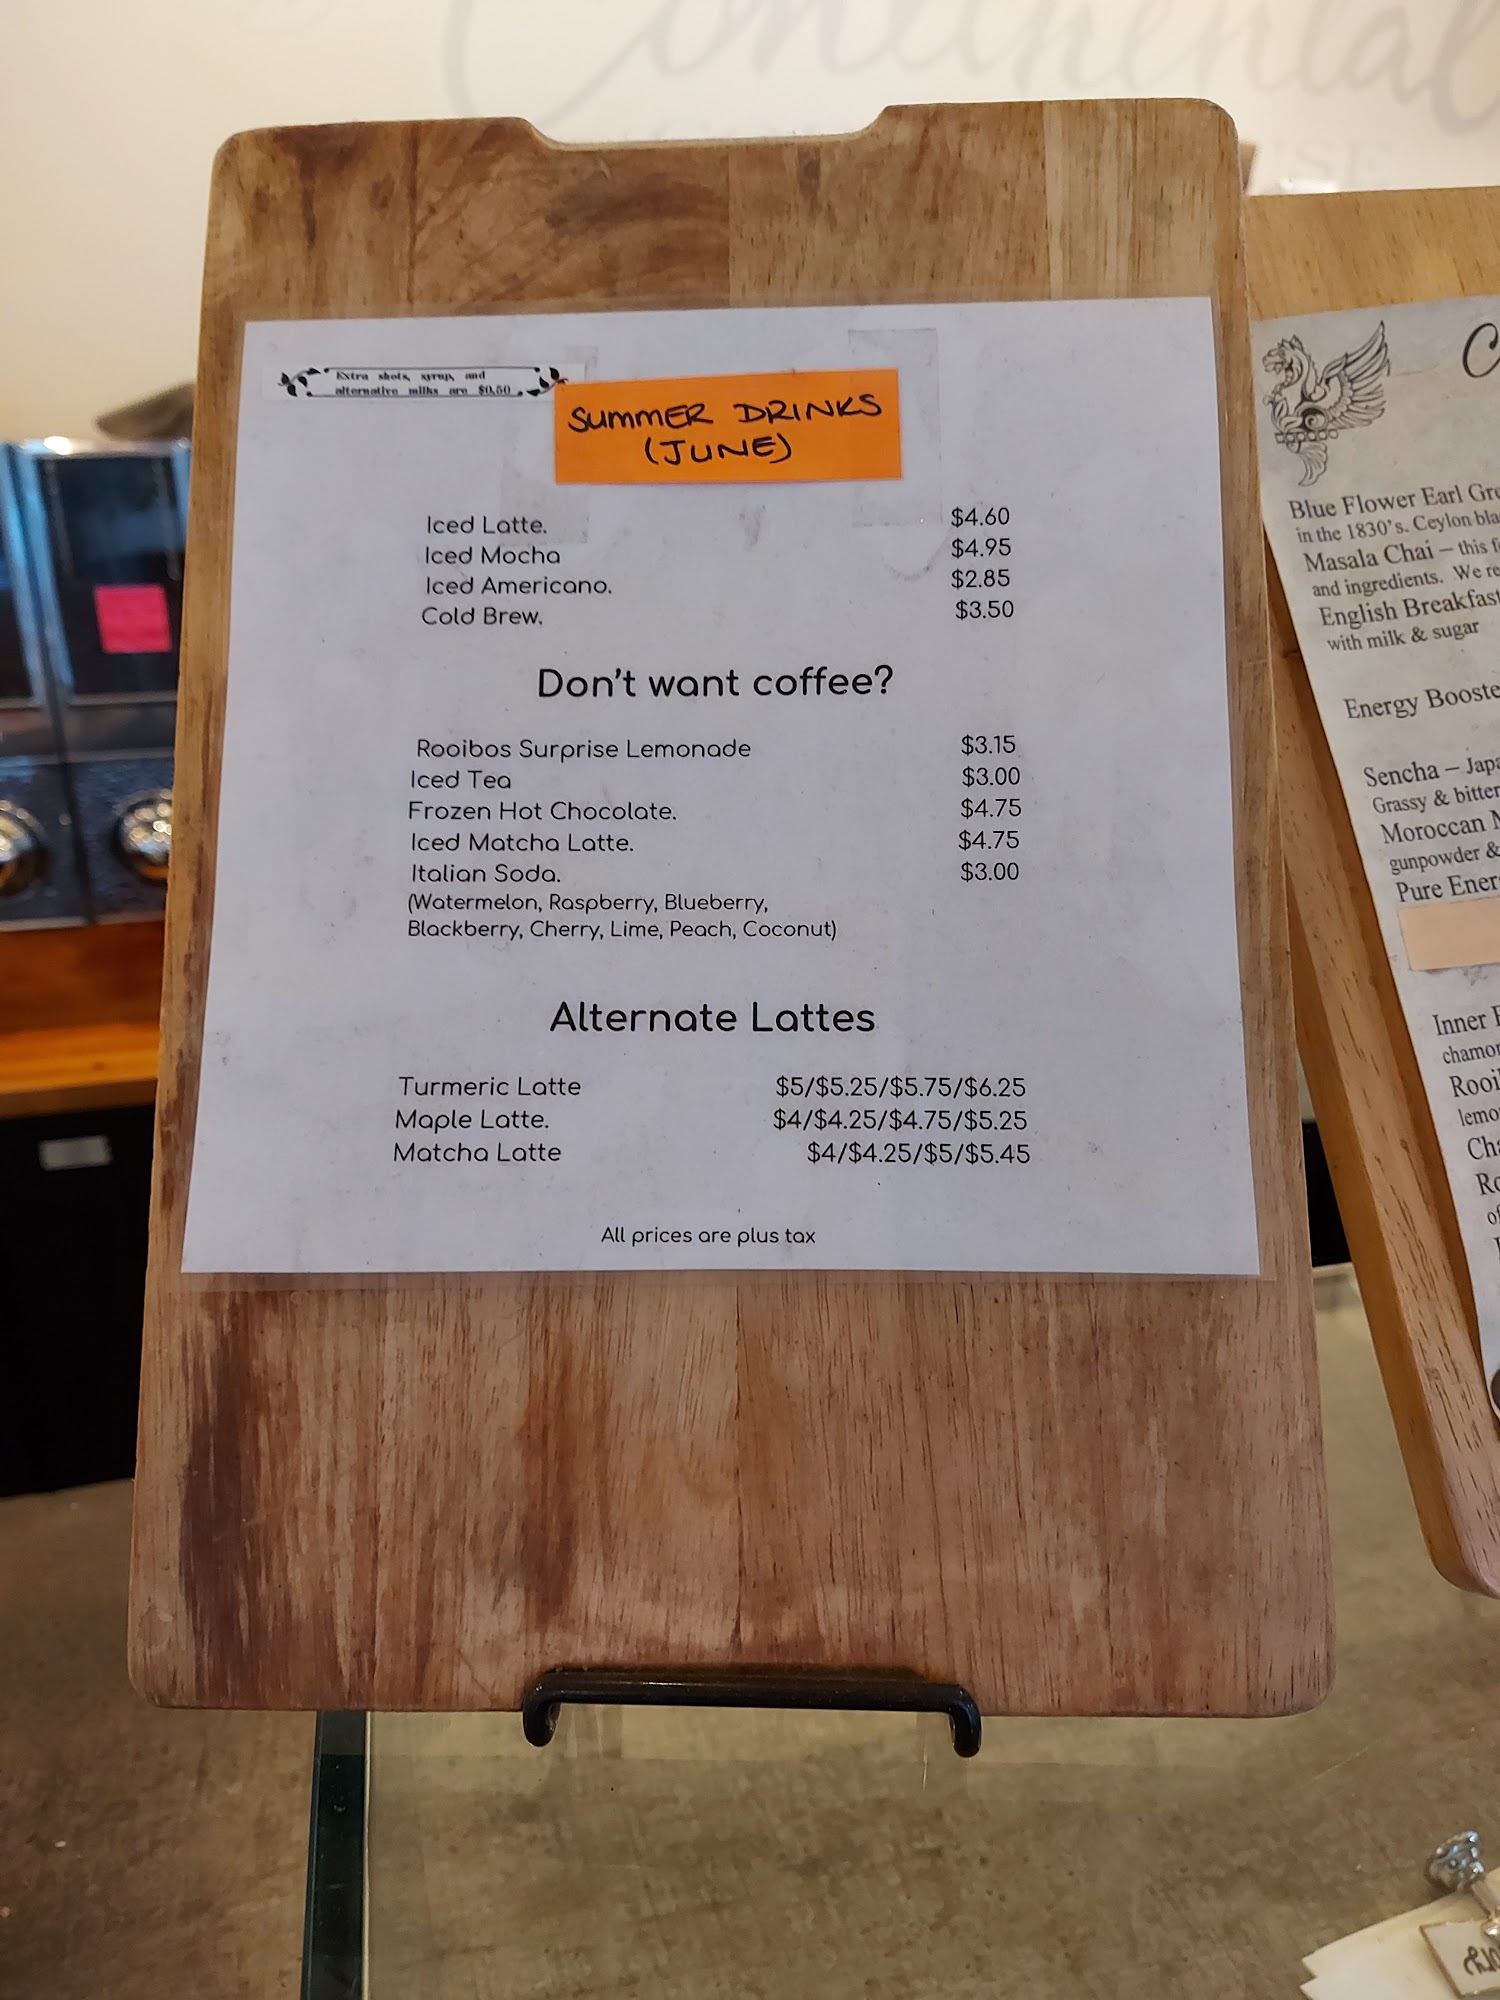 Continental
Extra shots, syrup, and
alternative milks are $0.50
SUMMER DRINKS
(JUNE)
Iced Latte. $4.60
Iced Mocha $4.95
Iced Americano. $2.85
Cold Brew. $3.50
Don't want coffee?
Rooibos Surprise Lemonade $3.15
Iced Tea $3.00
Frozen Hot Chocolate. $4.75
Iced Matcha Latte. $4.75
Italian Soda. $3.00
(Watermelon, Raspberry, Blueberry,
Blackberry, Cherry, Lime, Peach, Coconut)
Alternate Lattes
Turmeric Latte $5/$5.25/$5.75/$6.25
Maple Latte. $4/$4.25/$4.75/$5.25
Matcha Latte $4/$4.25/$5/$5.45
All prices are plus tax
Blue Flower Earl
in the 1830's. Ceylon
Masala Chai – this
and ingredients. We
English Breakfast
with milk & sugar
Energy
Sencha –
Grassy & bitter
Moroccan
gunpowder &
Pure
Inner